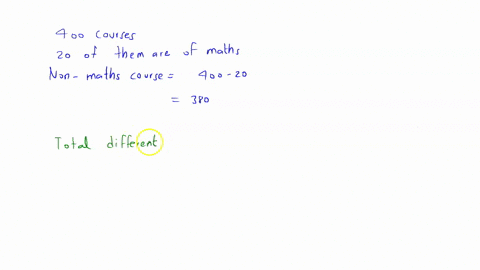 400 courses
20 of them are of maths
Non-maths course = 400-20
= 380
Total different